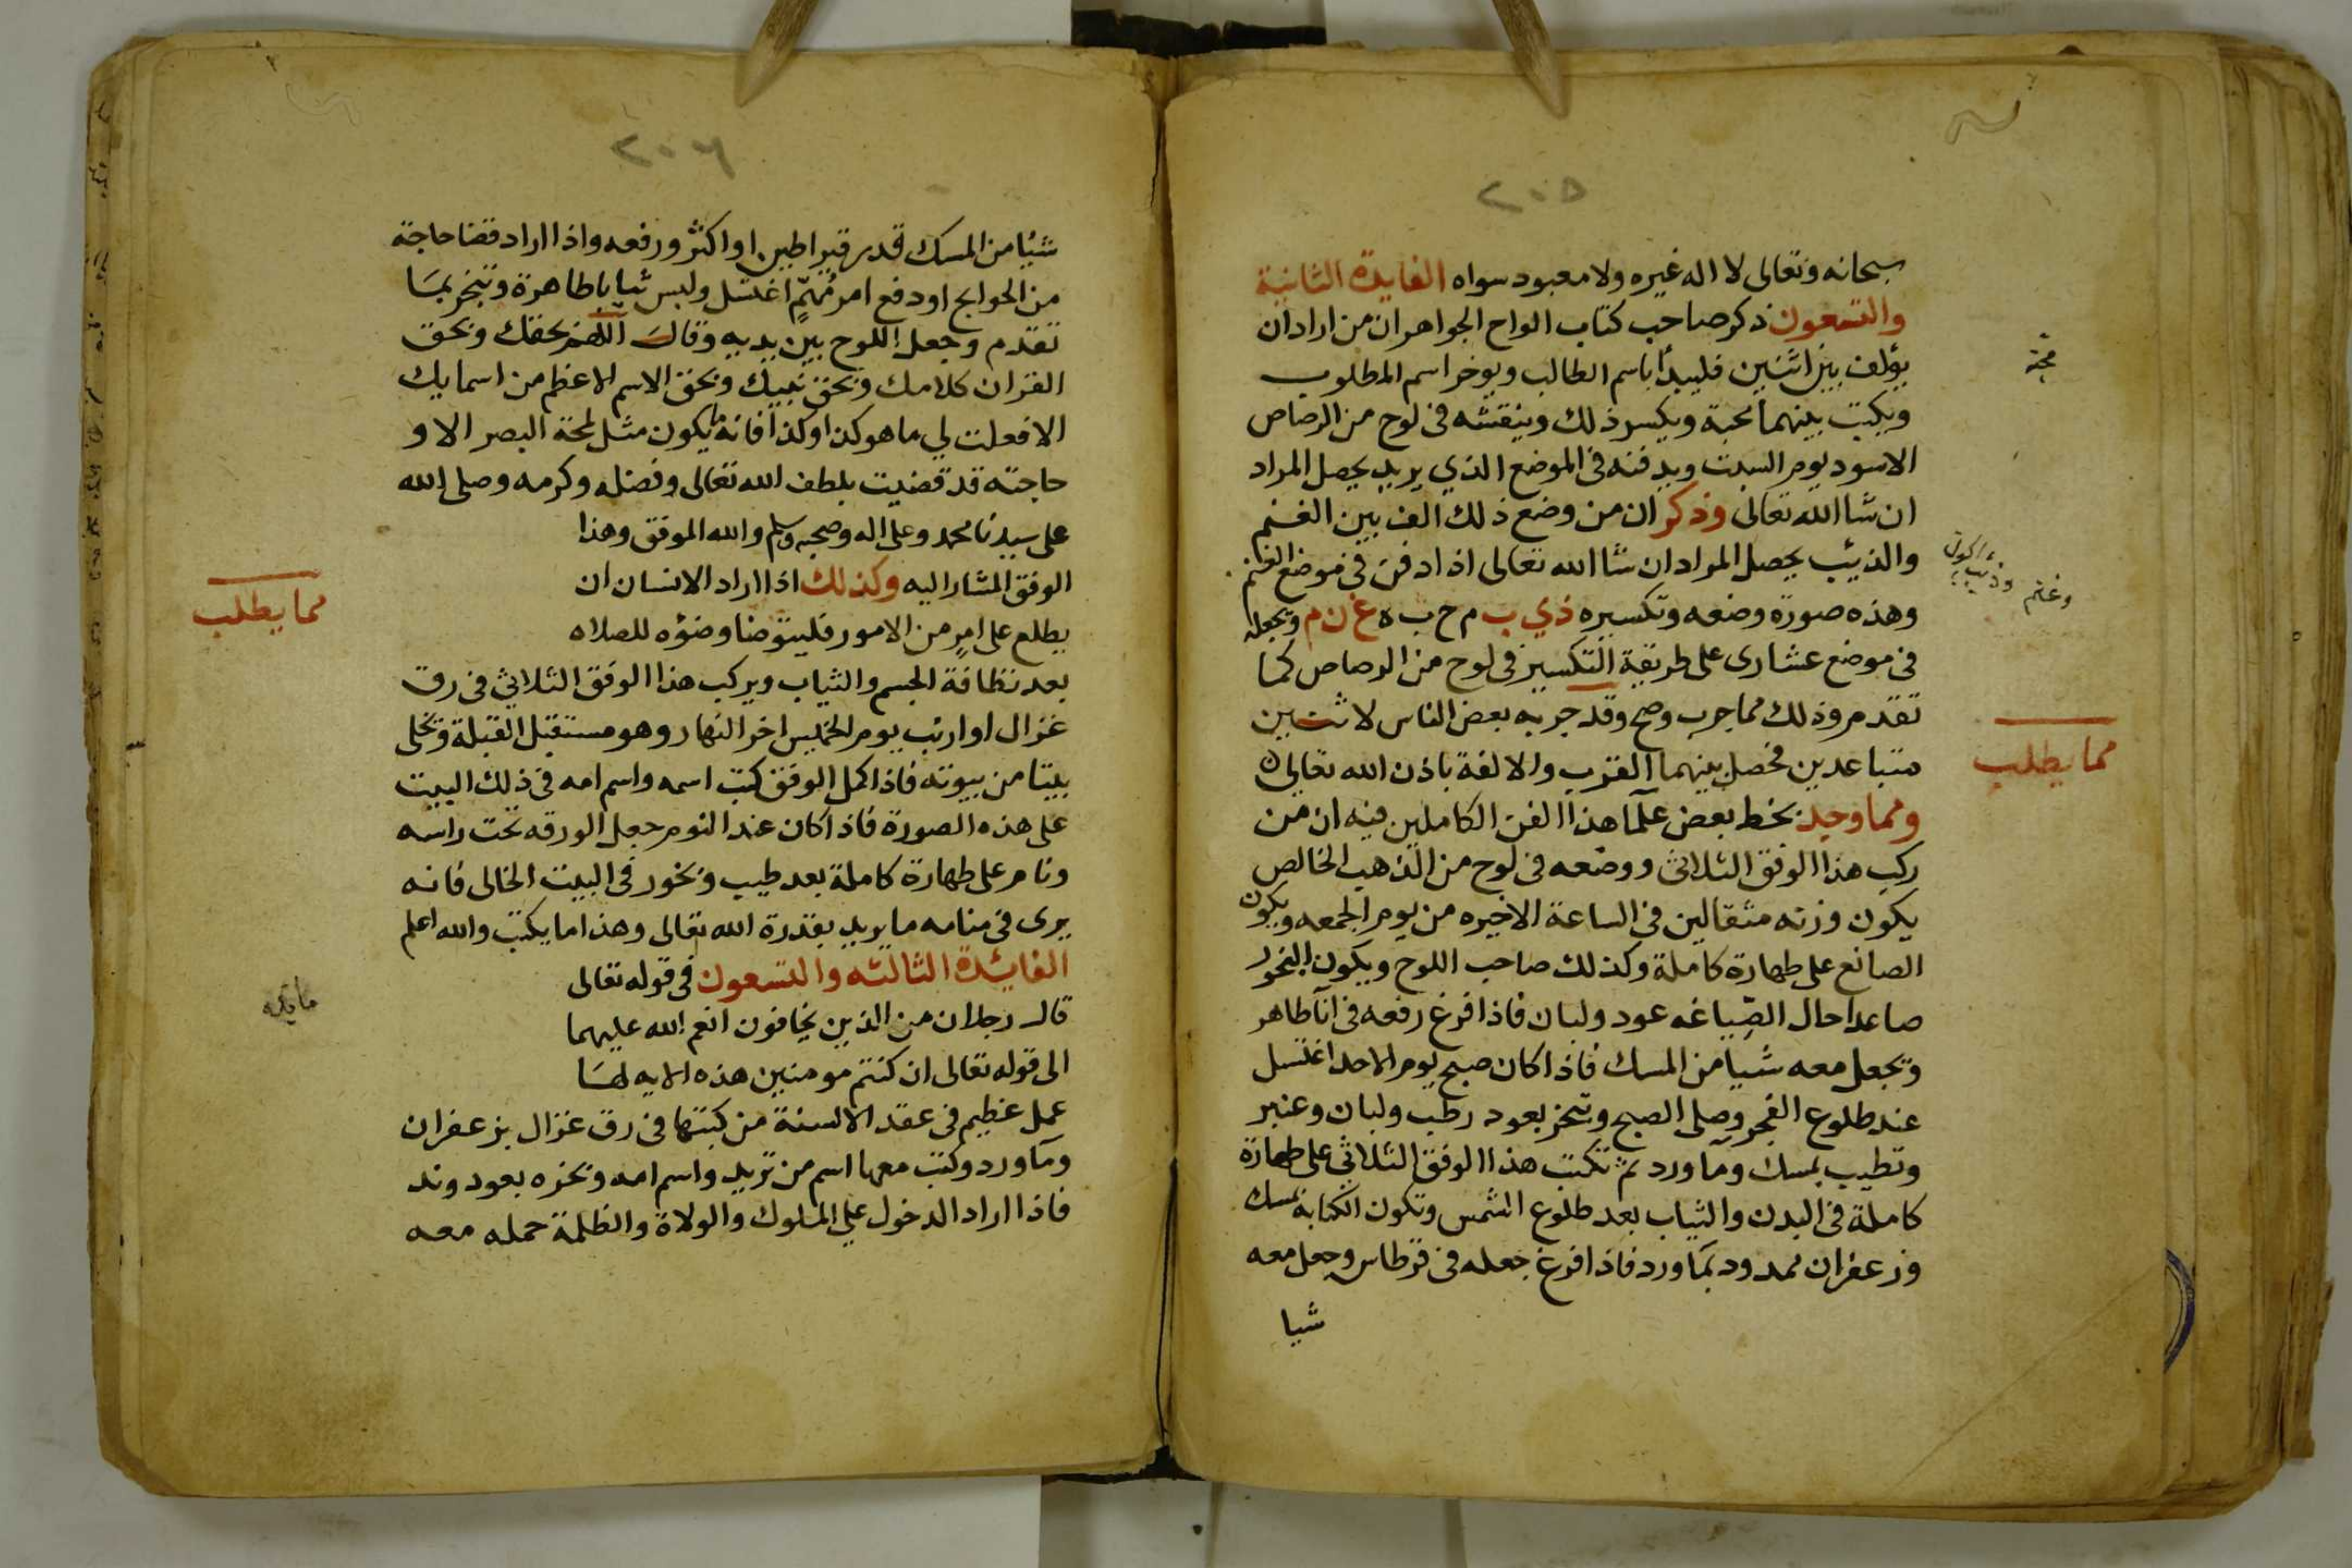 ٢٠٥
سبحانه وتعالى لا اله غيره ولا معبود سواه الفايدة الثانية
والتسعون ذكر صاحب كتاب الواح الجواهر ان من اراد ان
يؤلف بين اثنين فليبدأ باسم الطالب ويوخر اسم المطلوب
ويكتب بينهما محبة ويكسر ذلك وينقشه في لوح من الرصاص
الاسود يوم السبت ويدفنه في الموضع الذي يريد يحصل المراد
ان شا الله تعالى وذكر ان من وضع ذلك الف بين الغنم
والذيب يحصل المراد ان شا الله تعالى اذا دفن في موضع الغنم
وهذه صورة وضعه وتكسيره ذي ب م ح ب ه غ ن م ويجعله
في موضع عشارى على طريقة التكسير في لوح من الرصاص كما
تقدم وذلك مما جرب وصح وقد جربه بعض الناس لاثنين
متباعدين فحصل بينهما القرب والالفة باذن الله تعالى
ومما وجد بخط بعض علما هذا الفن الكاملين فيه ان من
ركب هذا الوفق الثلاثي ووضعه في لوح من الذهب الخالص
يكون وزنه مثقالين في الساعة الاخيره من يوم الجمعه ويكون
الصانع على طهارة كاملة وكذلك صاحب اللوح ويكون البخور
صاعدا حال الصياغه عود ولبان فاذا افرغ رفعه في انآ طاهر
وتجعل معه شيا من المسك فاذا كان صبح يوم الاحد اغتسل
عند طلوع الفجر وصلى الصبح وتبخر بعود رطب ولبان وعنبر
وتطيب بمسك ومآ ورد ثم تكتب هذا الوفق الثلاثي على طهارة
كاملة في البدن والثياب بعد طلوع الشمس وتكون الكتابة بمسك
وزعفران ممدود بمآ ورد فاذا افرغ جعله في قرطاس وجعل معه
شيا
محبة
وغنم وذيب
مما يطلب
٢٠٦
شيئا من المسك قدر قيراطين او اكثر ورفعه واذا اراد قضا حاجة
من الحوايج او دفع امر مهم اغتسل ولبس ثيابا طاهرة وتبخر بما
تقدم وجعل اللوح بين يديه وقال اللهم بحقك وبحق
القران كلامك وبحق نبيك وبحق الاسم الاعظم من اسمايك
الا فعلت لي ما هو كذا وكذا فانه لا يكون مثل لمحة البصر الا و
حاجته قد قضيت بلطف الله تعالى وفضله وكرمه وصلى الله
على سيدنا محمد وعلى اله وصحبه وسلم والله الموفق وهذا
الوفق المشار اليه وكذلك اذا اراد الانسان ان
يطلع على امر من الامور فليتوضا وضؤه للصلاه
بعد نظافة الجسم والثياب ويركب هذا الوفق الثلاثي في رق
غزال او ارنب يوم الخميس اخر النهار وهو مستقبل القبلة وتخلى
بيتا من بيوته فاذا اكمل الوفق كتب اسمه واسم امه في ذلك البيت
على هذه الصورة فاذا كان عند النوم جعل الورقه تحت راسه
ونام على طهارة كاملة بعد طيب وبخور في البيت الخالى فانه
يرى في منامه ما يريد بقدرة الله تعالى وهذا ما يكتب والله اعلم
الفايدة الثالثه والتسعون في قوله تعالى
قال رجلان من الذين يخافون انعم الله عليهما
الى قوله تعالى ان كنتم مومنين هذه الايه لها
عمل عظيم في عقد الالسنة من كتبها في رق غزال بزعفران
ومآ ورد وكتب معها اسم من تريد واسم امه وبخره بعود وند
فاذا اراد الدخول على الملوك والولاة والظلمة حمله معه
مما يطلب